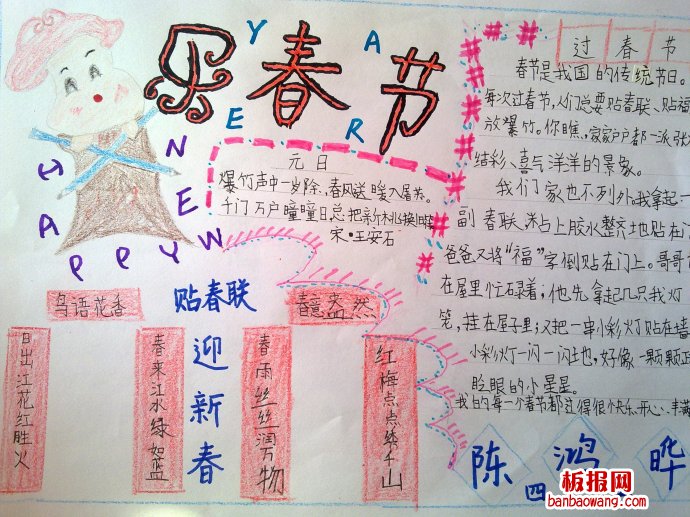 乐春节
HAPPY NEW YEAR
元日
爆竹声中一岁除,春风送暖入屠苏。
千门万户曈曈日总把新桃换旧符
宋·王安石
过春节
春节是我国的传统节日。
每次过春节,人们总要贴春联、贴福
放爆竹。你瞧,家家户户都一派张
结彩、喜气洋洋的景象。
我们家也不列外。我拿起一
副春联,粘上胶水整齐地贴在门
爸爸又将“福”字倒贴在门上。哥哥
在屋里忙碌着;他先拿起几只我灯
笼,挂在屋子里;又把一串小彩灯贴在墙
小彩灯一闪一闪地,好像一颗颗正
眨眼的小星星。
我的每一个春节都过得很个快乐、开心、丰满
鸟语花香
日出江花红胜火
春来江水绿如蓝
贴春联
迎新春
春意盎然
春雨丝丝润万物
红梅点点绣千山
陈鸿晔
四
板报网
banbaowang.com